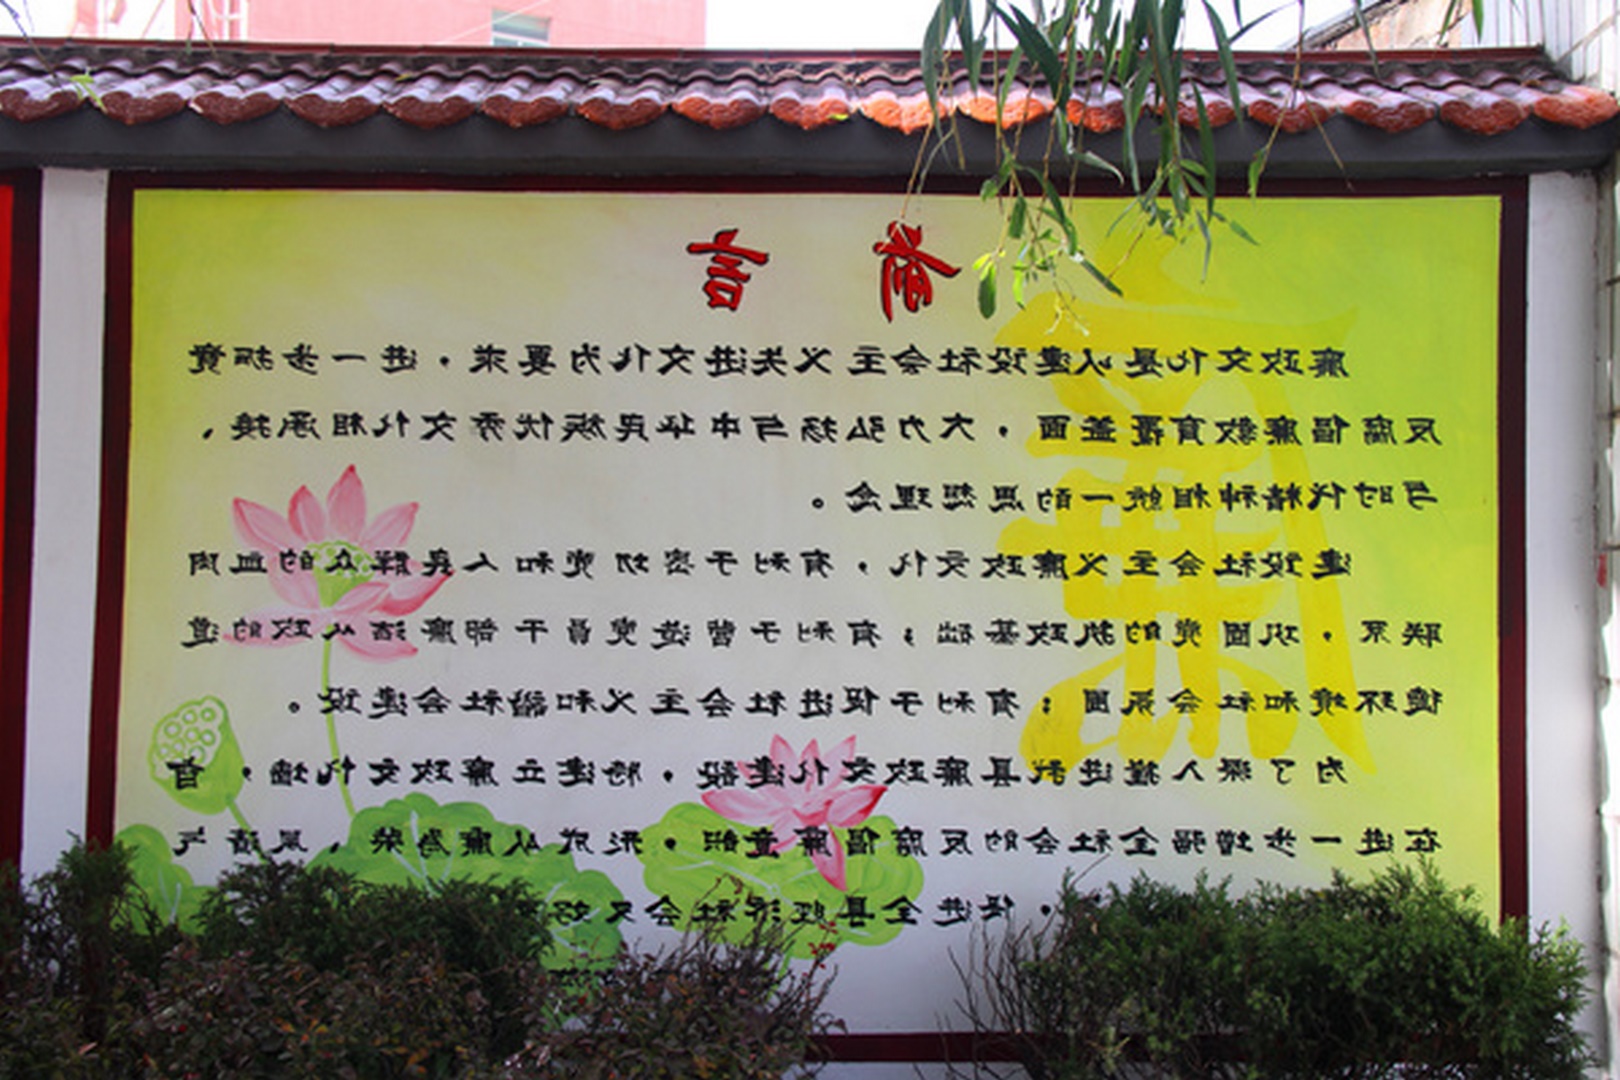 前言
廉政文化是以建设社会主义先进文化为要求，进一步拓宽
反腐倡廉教育覆盖面，大力弘扬与中华民族优秀文化相承接、
与时代精神相统一的思想理念。
建设社会主义廉政文化，有利于密切党和人民群众的血肉
联系，巩固党的执政基础；有利于营造党员干部廉洁从政的道
德环境和社会氛围；有利于促进社会主义和谐社会建设。
为了深入推进我县廉政文化建設，特建立廉政文化墙，旨
在进一步增强全社会的反腐倡廉意识，形成从廉為荣、风清气
，促进全县经济社会又好
廉